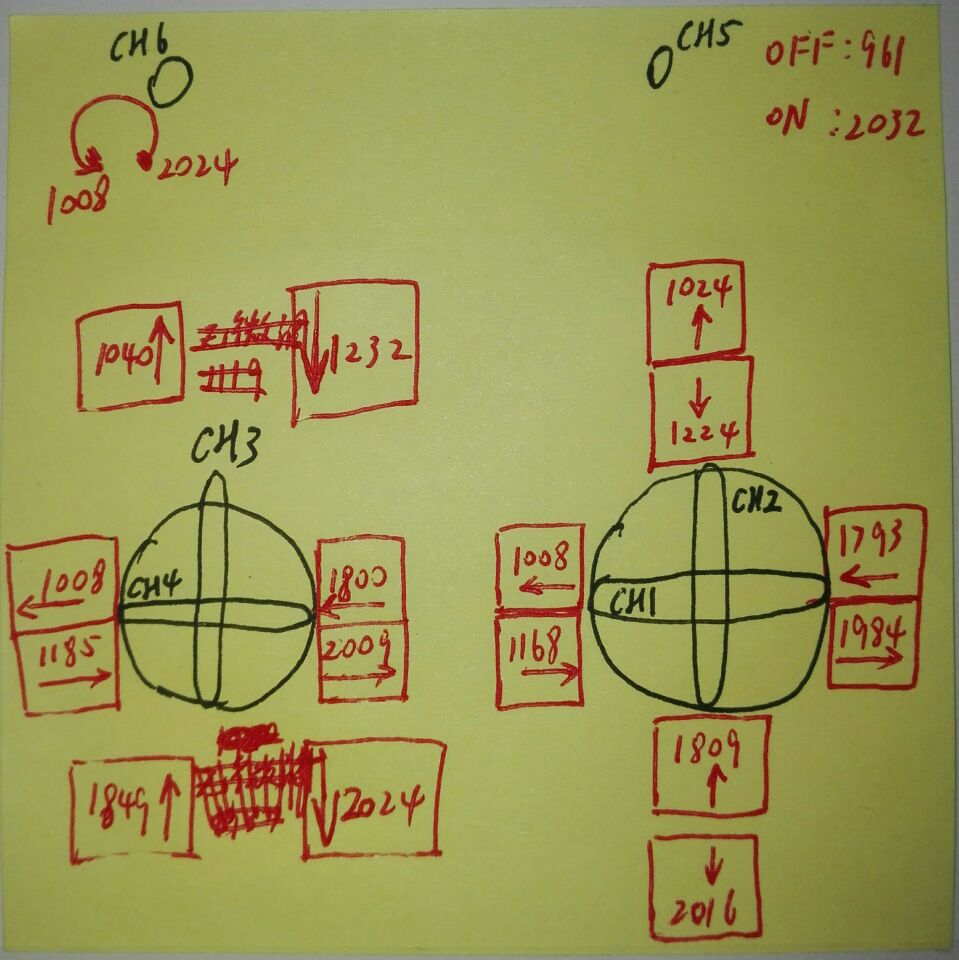 CH6
CH5
OFF:961
ON:2032
1008
2024
1040
1232
1024
1224
CH3
CH2
1008
CH4
1800
1185
2009
1008
CH1
1793
1168
1984
1849
2024
1809
2016